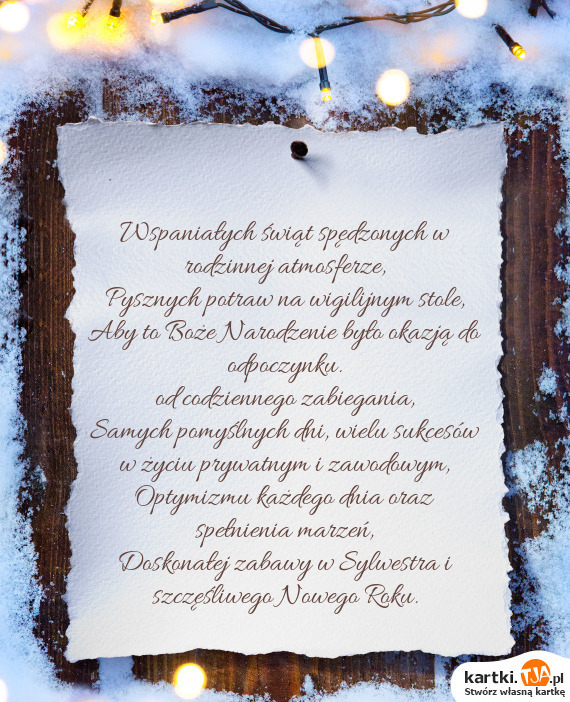 Wspaniałych świąt spędzonych w
rodzinnej atmosferze,
Pysznych potraw na wigilijnym stole,
Aby to Boże Narodzenie było okazją do
odpoczynku.
od codziennego zabiegania,
Samych pomyślnych dni, wielu sukcesów
w życiu prywatnym i zawodowym,
Optymizmu każdego dnia oraz
spełnienia marzeń,
Doskonałej zabawy w Sylwestra i
szczęśliwego Nowego Roku.
kartki.TJA.pl
Stwórz własną kartkę